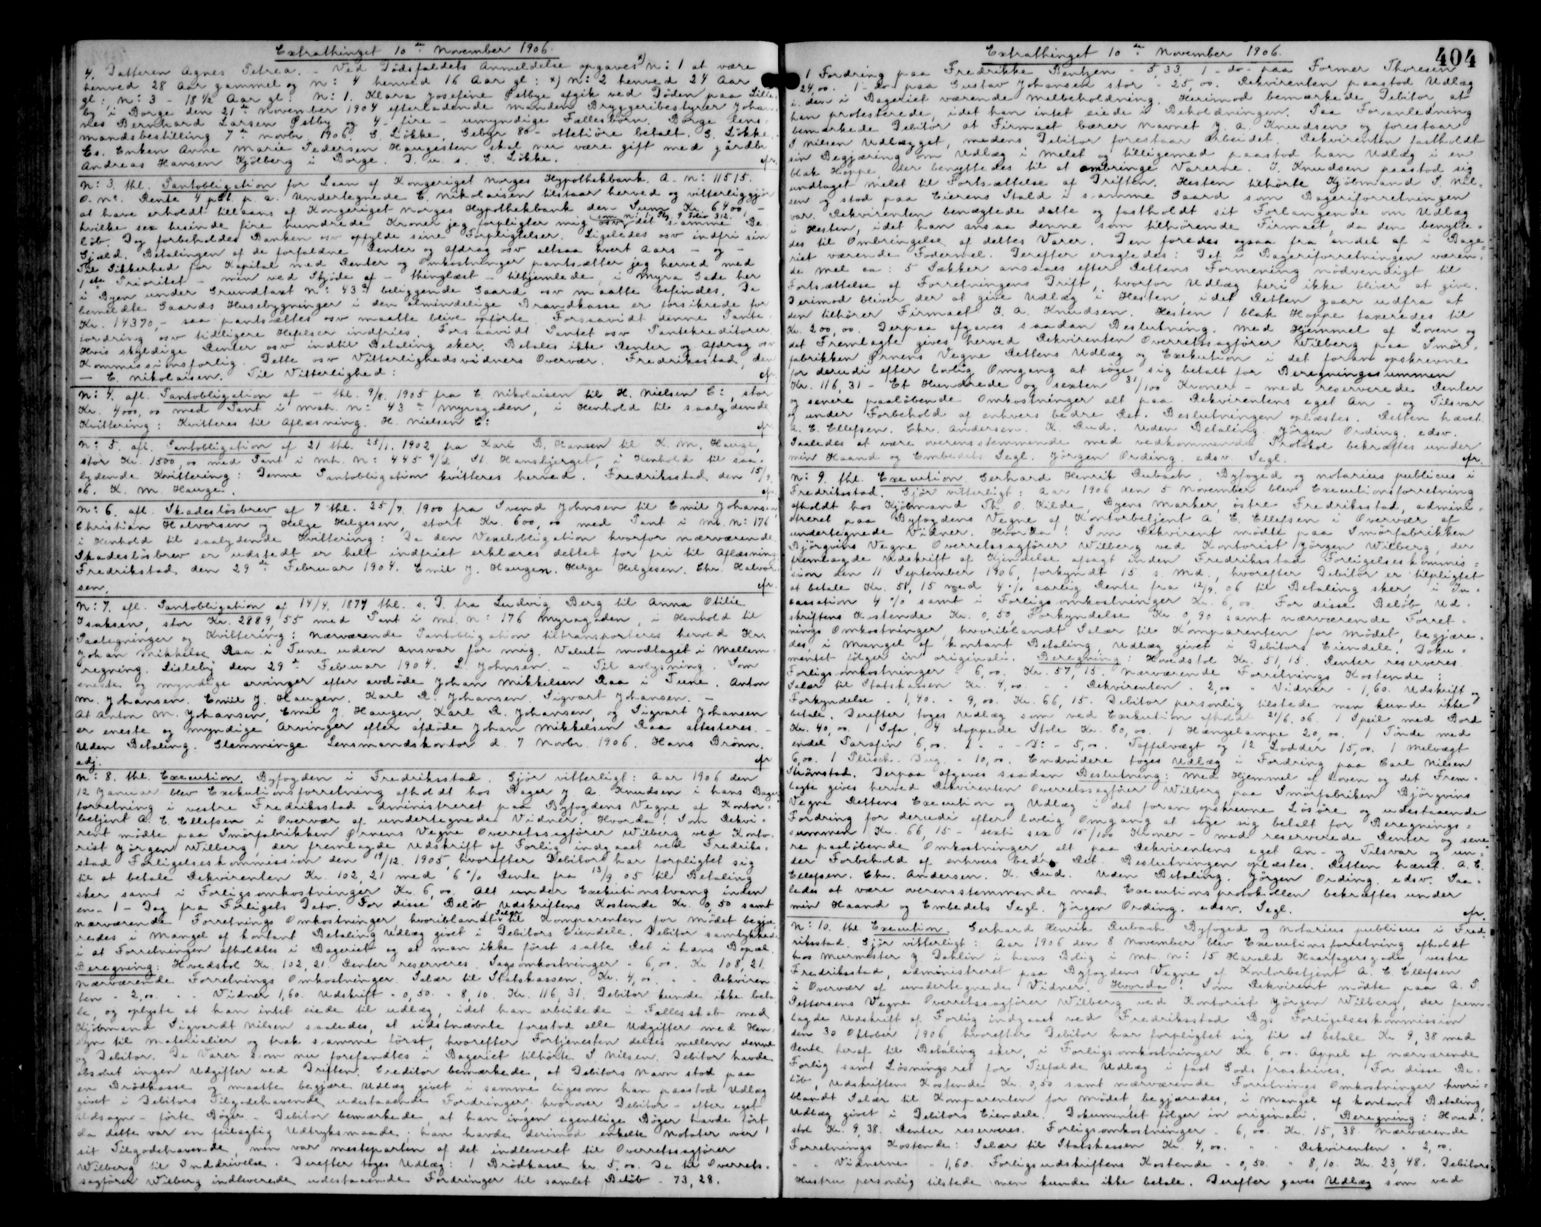 Extrathinget 10de November 1906.
4. Datteren Agnes Petrea. - Ved Dödsfaldets Anmeldelse opgaves N: 1 at være
henved 28 Aar gammel og N: 4 henved 16 Aar gl: N: 2 henved 24 Aar
gl: N: 3 - 18½ Aar gl: N: 1. Klara Josefine Östbye afgik ved Döden paa Lille-
by i Borge den 21de November 1904 efterladende Manden Bryggeribestyrer Johan-
nes Bernhard Larsen Östby og 4 - fire - umyndige Fællesbörn. Borge Lens-
mandsbestilling 7de novbr. 1906. G. Lökke. Gebyr 80 - ottetiöre betalt. G. Lökke.
Es. Enken Anne Marie Pedersen Haugesten skal nu være gift med gårdbr.
Andreas Hansen Kjölberg i Borge. D. u. s. G. Lökke. efr.
N: 3. thl. Pantobligation for Laan af Kongeriget Norges Hypothekbank. A. N: 11515.
O. N: Rente 4 pCt. p. a. Undertegnede E. Nikolaisen tilstaar herved og vitterliggjör
at have erholdt tillaans af Kongeriget Norges Hypothekbank den Sum Kr. 6400 -
hvilke sex tusinde fire hundrede Kroner jeg forpligter mig samme Be-
löb. Jeg forbeholdes Banken osv opfylde sine Forpligtelser. Ligeledes osv indfri sin
Gjæld. Betalingen af de forfaldne Renter og Afdrag osv altsaa hvert Aars - og -
Til Sikkerhed for Kapital med Renter og Omkostninger pantsætter jeg herved med
1ste Prioritet - min ved Skjöde af - thinglæst - tilhjemlede, i Myra Gade her
i Byen under Grundtaxt N: 43 a beliggende Gaard osv maatte befindes. De
bemeldte Gaards Husebygninger i den almindelige Brandkasse er forsikrede for
Kr. 14370,- saa pantsættes osv maatte blive opförte. Forsaavidt denne Pante-
fordring osv tidligere Heftelser indfries. Forsaavidt Pantet osv Pantekreditorer
Hvis skyldige Renter osv indtil Betaling sker. Betales ikke Renter og Afdrag osv
Kommissionsforlig. Dette osv Vitterlighedsvidners Overvær. Fredrikstad, den
- E. Nikolaisen. Til Vitterlighed: efr.
N: 4. afl. Pantobligation af - thl. 9/8. 1905 fra E. Nikolaisen til H. Nielsen E:, stor
Kr. 4000,00 med Pant i mat. N: 43 a Myragaden, i Henhold til saalydende
Kvittering: Kvitteres til Aflæsning. H. Nielsen E: efr.
N: 5. afl. Pantobligation af 21 thl. 25/1. 1902 fra Karl B. Hansen til K. M. Hauge,
stor Kr. 1500,00 med Pant i Mt. N: 445 St. Hansbjerget, i Henhold til saa-
lydende Kvittering: Denne Pantobligation kvitteres herved. Fredriksstad den 15/9.
06. K. M. Hauge. efr.
N: 6. afl. Skadeslösbrev af 7 thl. 25/7. 1900 fra Svend Johnsen til Emil Johansen,
Christian Halvorsen og Helge Helgesen, stort Kr. 600,00 med Pant i mt. N: 176
i Henhold til saalydende Kvittering: Da den Vexelobligation hvorfor nærværende
Skadeslösbrev er udstedt er helt indfriet erklæres dettet for fri til Aflæsning.
Fredrikstad den 29de Februar 1904. Emil J. Haugen. Helge Helgesen. Chr. Halvor-
sen. efr.
N: 7. afl. Pantobligation af 14/4. 1874 thl. s. D. fra Ludvig Berg til Anna Otilie
Isaksen, stor Kr. 2889,55 med Pant i mt. N: 176 Myragaden, i Henhold til
Paategninger og Kvittering: Nærværende Pantobligation tiltransporteres herved Hr.
Johan Mikkelse Raa i Tune uden ansvar for mig. Valuta modtaget i Mellem-
regning. Lisleby den 29de Februar 1904. S. Johnsen. - Til avlysning. Som
eneste og myndige arvinger efter avdöde Johan Mikkelsen Raa i Tune. Anton
M. Johansen. Emil J. Haugen. Karl R. Johansen. Sigvart Johansen. -
At Anton M. Johansen, Emil J. Haugen, Karl R. Johansen, og Sigvart Johansen
er eneste og myndige Arvinger efter afdöde Johan Mikkelsen Raa attesteres. -
Uden Betaling. Glemminge Lensmandskontor d. 7 Novbr. 1906. Hans Brönn.
adj. efr
N: 8. thl. Execution. Byfogden i Fredriksstad. Gjör vitterligt: Aar 1906 den
12 Januar blev Exekutionsforretning afholdt hos Bager J. A. Knudsen i hans Bager-
forretning i vestre Fredriksstad administreret paa Byfogdens Vegne af Kontor-
betjent A. E. Ellefsen i Overvær af undertegnede Vidner. Hvorda! Som Rekvi-
rent mödte paa Smörfabrikken Örnens Vegne Overretssagförer Wilberg ved Konto-
rist Jörgen Wilberg, der fremlagde Udskrift af Forlig indgaaet ved Fredriks-
stad Forligelseskommission den 14/12. 1905 hvorefter Debitor har forpligtet sig
til at betale Rekvirenten Kr. 102,21 med 6% Rente fra 13/9 05 til Betaling
sker samt i Forligsomkostninger Kr. 6,00. Alt under Exekutionstvang inden
en - 1 - Dag fra Forligets Dato. For disse Belöb Udskriftens Kostende Kr. 0,50 samt
nærværende Forretnings Omkostninger, hvoriblandt Salær til Komparenten for mödet begjæ-
redes i Mangel af kontant Betaling Udlæg givet i Debitors Eiendele. Debitor samtykkede
i at Forretningen afholdtes i Bageriet og at man ikke först satte Ret i hans Bopæl.
Beregning: Hovedstol Kr. 102,21. Renter reserveres. Sagsomkostninger - 6,00. Kr 108,21.
Nærværende Forretnings Omkostninger. Salær til Statskassen Kr. 4,00. Rekviren-
ten - 2,00. - Vidner 1,60. Udskrift - 0,50. - 8,10. Kr. 116,31. Debitor kunde ikke beta-
le, og oplyste at han intet eiede til udlæg, idet han arbeidede i Fællesskab med
Kjöbmand Sigvardt Nilsen saaledes, at sidstnævnte forestod alle Udgifter med Hen-
syn til materialier og trak samme först, hvorefter Fortjenesten deltes mellem denne
og Debitor. De Varer som nu forefandtes i Bageriet tilhörte S. Nilsen. Debitor havde
absolut ingen Udgifter ved Driften. Creditor bemærkede, at Debitors Navn stod paa
en Brödkasse og maatte begjære Udlæg givet i samme ligesom han paastod Udlæg
givet i Debitors Tilgodehavende, udestaaende Fordringer, hvorover Debitor - efter eget
Udsagn - förte Böger. - Debitor bemærkede, at han ingen egentlige Böger havde fört
da dette var en feilagtig Udtryksmaade; han havde derimod enkelte Notater over
sit Tilgodehavende, men var mesteparten af det indleveret til Overretssagförer
Wilberg til Inddrivelse. Derefter toges Udlæg: 1 Brödkasse kr. 5,00. De til Overrets-
sagförer Wilberg indleverede udestaaende Fordringer til samlet Belöb - 73,28.
Extrathinget 10de November 1906.
404
1 Fordring paa Fredrikke Bentzen - 5,33. 1 - do - paa Former Thoresen
24,00. 1 - do paa Gustav Johansen stor - 25,00. Rekvirenten paastod Udlæg
i den i Bageriet værende Melbeholdning. Herimod bemærkede Debitor at
han protesterede, idet han intet eiede i Beholdningen. Paa Foranledning
bemærkede Debitor at Firmaet bærer navnet J. A. Knudsen og forestaar
S Nilsen Udlægget, medens Debitor forestaar Arbeidet. Rekvirenten fastholdt
sin Begjæring om Udlæg i Melet og tilligemed paastod han Udlæg i en
blak Hoppe, der benyttedes til at ombringe Varerne. J. Knudsen paastod sig
undtaget Melet til Fortsættelse af Driften. Hesten tilhörte Kjöbmand S. Nil-
sen og stod paa Eierens Stald i samme Gaard som Bageriforretningen
var. Rekvirenten benægtede dette og fastholdt sit Forlangende om Udlæg
i Hesten, idet han ansaa denne som tilhörende Firmaet, da den benytte-
des til Ombringelse af dettes Varer. Den foredes ogsaa fra endel af i Bage-
riet værende Fodermel. Derefter eragtedes: Det i Bageriforretningen væren-
de Mel ca: 5 Sækker ansaaes efter Rettens Formening nödvendigt til
Fortsættelse af Forretningens Drift, hvorfor Udlæg heri ikke bliver at give.
Derimod bliver der at give Udlæg i Hesten, idet Retten gaar udfra at
den tilhörer Firmaet J. A. Knudsen. Hesten 1 blak Hoppe taxeredes til
Kr. 200,00. Derpaa afgaves saadan Beslutning: med Hjemmel af Loven og
det Fremlagte gives herved Rekvirenten Overretssagförer Wilberg paa Smör-
fabrikken Örnens Vegne Rettens Udlæg og Exekution i det foran opskrevne
for derudi efter lovlig Omgang at söge sig betalt for Beregningssummen
Kr. 116,31 - Et Hundrede og sexten 31/100 Kroner - med reserverede Renter
og senere paalöbende Omkostninger alt paa Rekvirentens eget An- og Tilsvar
og under Forbehold af enhvers bedre Ret. Beslutningen oplæstes. Retten hævet.
A. E. Ellefsen. Chr. Andersen. K. Rud. Uden Betaling Jörgen Ording, edsv.
Saaledes at være overensstemmende med vedkommende Protokol bekræftes under
min Haand og Embedets Segl. Jörgen Ording. edsv. Segl. efr.
N: 9. thl. Execution. Gerhard Henrik Aubach. Byfoged og notarius publicus i
Fredriksstad. Gjör vitterligt: Aar 1906 den 5 November blev Executionsforretning
afholdt hos Kjöbmand Th. O. Kilde, Byens Marker, östre Fredriksstad, admini-
streret paa Byfogdens Vegne af Kontorbetjent A. E. Ellefsen i Overvær af
undertegnede Vidner. Hvorda! Som Rekvirent mödte paa Smörfabrikken
Björgvins Vegne Overretssagförer Wilberg ved Kontorist Jörgen Wilberg, der
fremlagde Udskrift af Kjendelse afsagt inden Fredriksstad Forligelseskommis-
sion den 11 September 1906, forkyndt 15 s. Md., hvorefter Debitor er tilpligtet
at betale Kr. 51,15 med 4% aarlig Rente fra 12/9. 06 til Betaling sker, i In-
cassation 4% samt i Forligsomkostninger Kr. 6,00. For disse Belöb Ud-
skriftens Kostende Kr. 0,50, Forkyndelse Kr. 0,90 samt nærværende Forret-
nings Omkostninger, hvoriblandt Salær til Komparenten for mödet, begjære-
des i Mangel af kontant Betaling, Udlæg givet i Debitors Eiendele. Doku-
mentet fölger in originali. Beregning: Hovedstol Kr. 51,15. Renter reserveres.
Forligsomkostninger - 6,00. Kr. 57,15. Nærværende Forretnings Kostende:
Salær til Statskassen Kr. 4,00. - - Rekvirenten - 2,00 - Vidner - 1,60. Udskrift og
Forkyndelse - 1,40. - 9,00. Kr. 66,15. Debitor personlig tilstede men kunde ikke
betale. Derefter toges Udlæg som ved Exekution afholdt 21/6. 06. 1 Speil med Bord
Kr. 40,00. 1 Sofa 4 stoppede Stole Kr. 80,00. 1 Hængelampe 20,00. 1 Tönde med
endel Parafin 6,00. 1 - D: - 5,00. Töffelvægt og 12 Lodder 15,00. 1 Melvægt
6,00. 1 Plüsch - Dug - 10,00. Endvidere toges Udlæg i Fordring paa Carl Nilsen
Strömstad. Derpaa afgaves saadan Beslutning: Med Hjemmel af Loven og det Frem-
lagte gives herved Rekvirenten Overretssagförer Wilberg paa Smörfabriken Björgvins
Vegne Rettens Execution og Udlæg i det foran opskrevne Lösöre og udestaaende
Fordring for derudi efter lovlig Omgang at söge sig betalt for Beregnings-
summen Kr. 66,15 - seksti sex 15/100 Kroner - med reserverede Renter og sene-
re paalöbende Omkostninger alt paa Rekvirentens eget An- og Tilsvar og un-
der Forbehold af enhvers bedre Ret. Beslutningen oplæstes. Retten hævet. A. E.
Ellefsen. Chr. Andersen. K. Rud. Uden Betaling. Jörgen Ording, edsv. Saa-
ledes at være overensstemmende med Executionsprotokollen bekræftes under
min Haand og Embedets Segl. Jörgen Ording. edsv. Segl. efr.
N: 10. thl. Execution. Gerhard Henrik Aubach Byfoged og Notarius publicus i Fred-
riksstad. Gjör vitterligt: Aar 1906 den 8 November blev Executionsforretning afholdt
hos Murmester G. Dahlin i hans Bolig i Mt. N: 15 Harald Haarfagersgade, vestre
Fredriksstad, administreret paa Byfogdens Vegne af Kontorbetjent A. E. Ellefsen
i Overvær af undertegnede Vidner. Hvorda! Som Rekvirent mödte paa A. S.
Pettersens Vegne Overretssagförer Wilberg ved Kontorist Jörgen Wilberg, der frem-
lagde Udskrift af Forlig indgaaet ved Fredriksstad Bys Forligelseskommission
den 30 Oktober 1906 hvorefter Debitor har forpligtet sig til at betale Kr 9,38 med
Rente heraf til Betaling sker, i Forligsomkostninger Kr 6,00. Appel af nærværende
Forlig samt Lösningsret for Tilfælde Udlæg i fast Gods fraskrives. For disse Be-
löb, Udskriftens Kostende Kr. 0,50 samt nærværende Forretnings Omkostninger hvori-
blandt Salær til Komparenten for mödet begjæredes, i Mangel af kontant Betaling
Udlæg givet i Debitors Eiendele. Dokumentet fölger in originali. Beregning: Hoved-
stol Kr. 9,38. Renter reserveres. Forligsomkostninger - 6,00. Kr. 15,38. Nærværende
Forretnings Kostende: Salær til Statskassen Kr 4,00. - Rekvirenten - 2,00.
- Vidnerne - 1,60. Forligsudskriftens Kostende - 0,50. - 8,10. Kr. 23,48. Debitors
Hustru personlig tilstede men kunde ikke betale. Derefter gaves Udlæg som ved